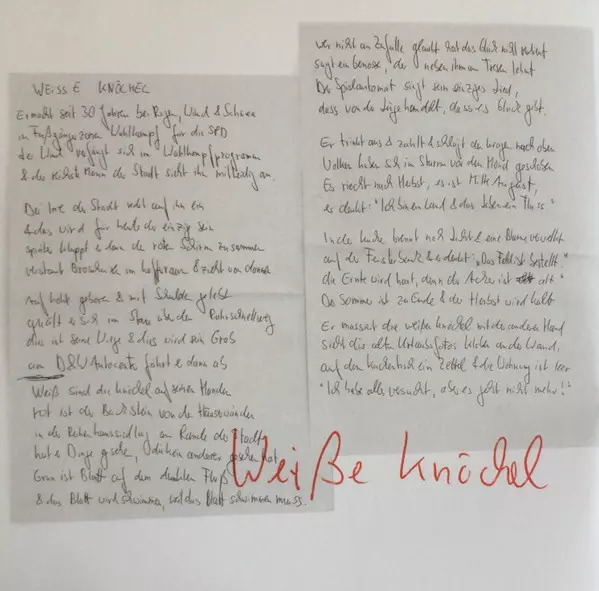 WEISSE KNÖCHEL
Er macht seit 30 Jahren bei Regen, Wind & Schnee
in Fußgängerzonen Wahlkampf für die SPD
der Wind verfängt sich im Wahlkampfprogramm
& der reichste Mann der Stadt sieht ihn mitleidig an.
Der Irre der Stadt redet auf ihn ein
& das wird für heute der einzige sein
später klappt er dann den roten Schirm zusammen
verstaut Broschüren im Kofferraum & zieht von dannen
Auf Kohle geboren & mit Schulden gelebt
quält er sich im Stau über den Ruhrschnellweg
dies ist seine Wiege & dies wird sein Grab
am D&W Autocenter fährt er dann ab
Weiß sind die Knöchel auf seinen Händen
rot ist der Backstein von den Hauswänden
in der Reihenhaussiedlung am Rande der Stadt
hat er Dinge gesehen, die kein anderer gesehen hat
Grün ist Blatt auf dem dunklen Fluß
& das Blatt wird schwimmen, weil das Blatt schwimmen muss.
wer nicht an Zufälle glaubt hat das Glück nicht verdient
sagt ein Genosse, der neben ihm am Tresen lehnt
Der Spielautomat singt sein einziges Lied,
dass von der Lüge handelt, dass es Glück gibt.
Er trinkt aus & zahlt & schlägt den Kragen nach oben
Wolken haben sich im Sturm vor den Mond geschoben
Es riecht nach Herbst, es ist Mitte August,
er denkt: "Ich bin ein Land & das Leben ein Fluss."
In der Küche brennt noch Licht & eine Blume verwelkt
auf der Fensterbank & er denkt: "Das Feld ist bestellt"
die Ernte wird hart, denn der Acker ist alt"
Der Sommer ist zu Ende & der Herbst wird kalt
Er massiert die weißen Knöchel mit der anderen Hand
sieht die alten Urlaubsfotos kleben an der Wand,
auf dem Küchentisch ein Zettel & die Wohnung ist leer
"Ich habe alles versucht, aber es geht nicht mehr!"
Weiße Knöchel